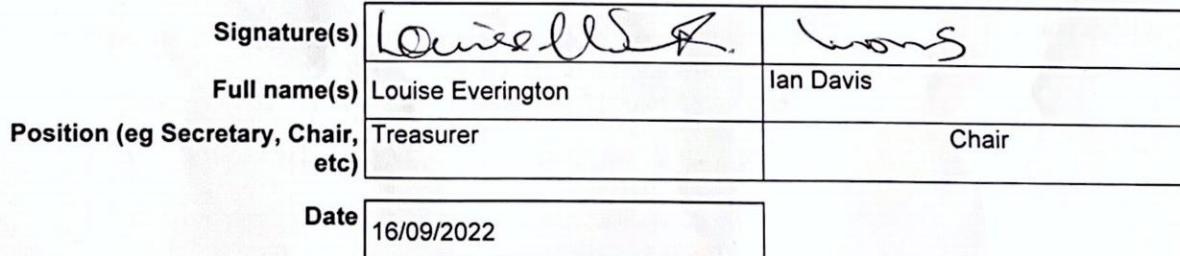 Signature(s) Louise
Full name(s) Louise Everington Ian Davis
Position (eg Secretary, Chair, Treasurer Chair
etc)
Date
16/09/2022